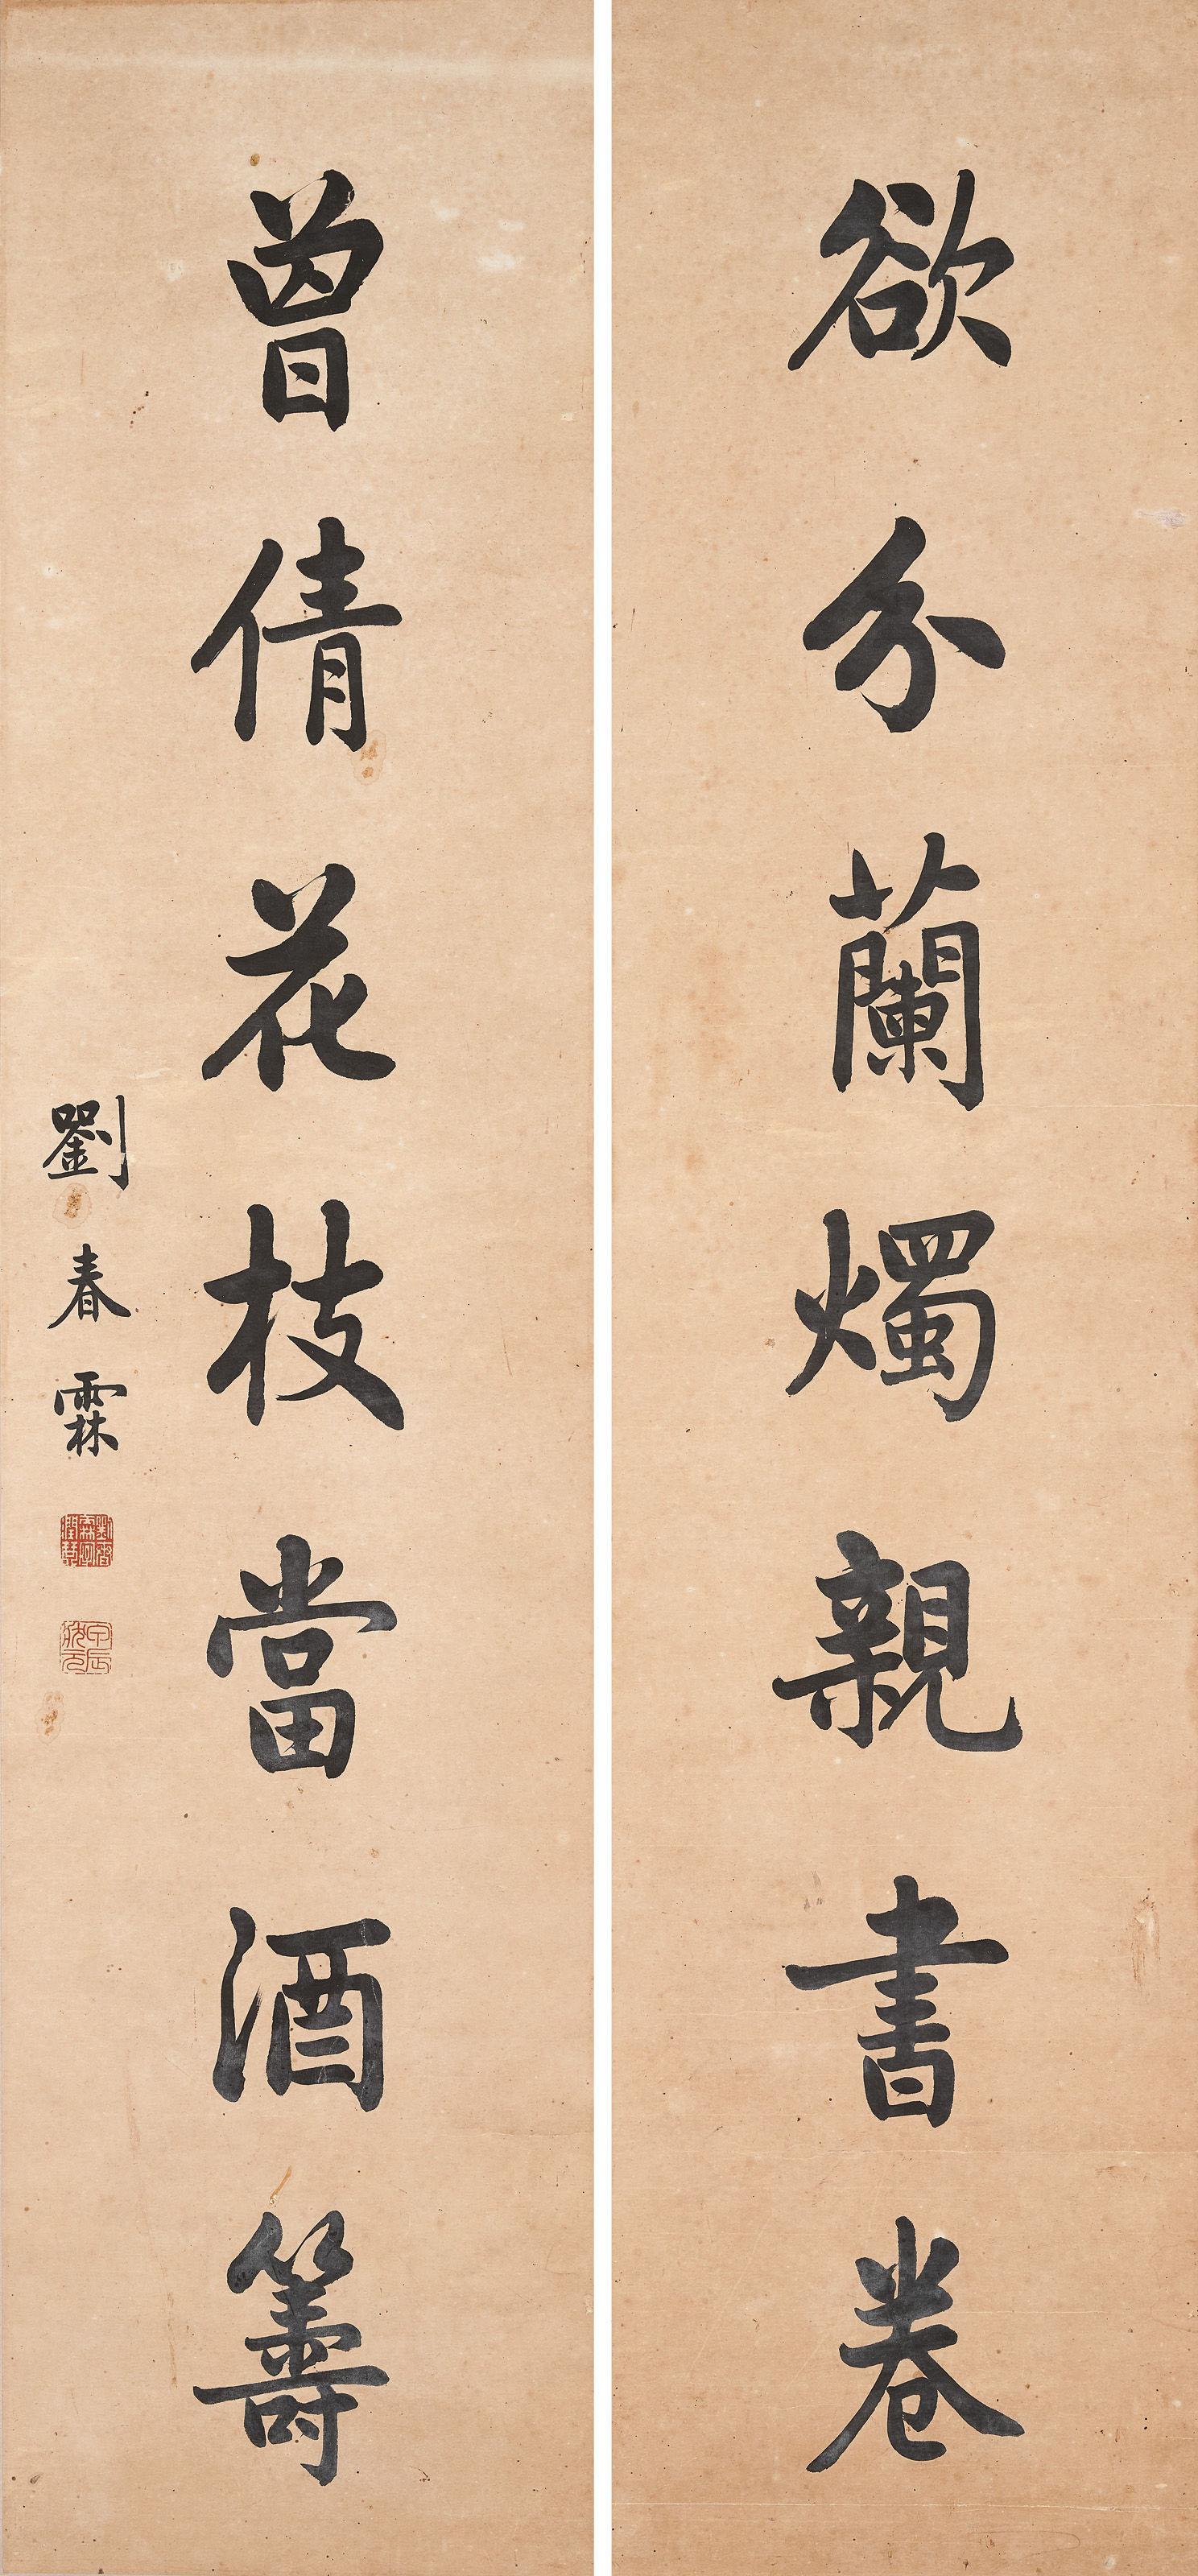 欲分蘭燭親書卷
曾倩花枝當酒籌
劉春霖
甲辰狀元